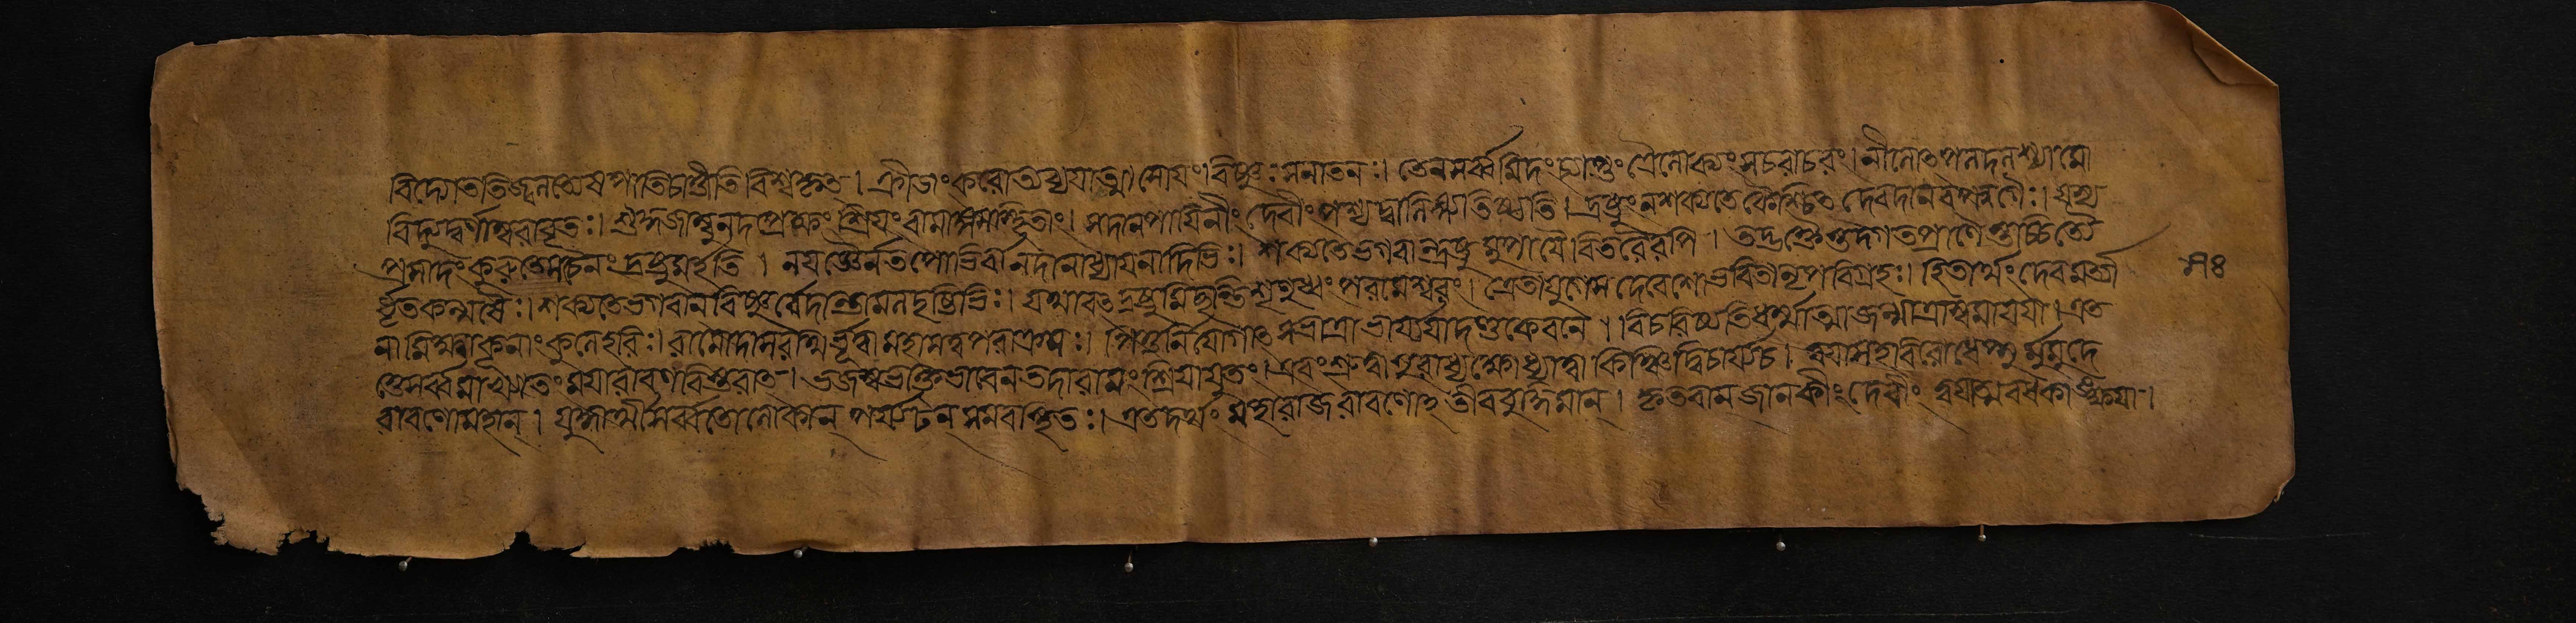 বিদ্যোততিজ্বলত্যেষপাতিচাত্তীতিবিশ্বকৃত্। ক্রীডাংকরোত্যব্যয়াত্মা সোয়ংবিষ্ণুঃসনাতনঃ। তেনসর্ব্বমিদংব্যাপ্তংত্রৈলোক্যংসচরাচরং। নীলোৎপলদলশ্যামো
বিদ্যুদ্বর্ণাম্বরাবৃতঃ। শুদ্ধজাম্বুনদপ্রখ্যাং শ্রিয়ংবামাঙ্কসংস্থিতাং। সদানপায়িনীং দেবীংপশ্যন্নালিঙ্গ্যতিষ্ঠতি। দ্রষ্টুংনশক্যতেকৈশ্চিৎ দেবদানবপন্নগৈঃ। যস্য
প্রসাদংকুরুতেসচৈনং দ্রষ্টুমর্হতি। নযজ্ঞৈর্নতপোভির্বানদানাধ্যয়নাদিভিঃ। শক্যতেভগবান্দ্রষ্টুমুপায়ৈরিতরৈরপি। তদ্ভক্তৈস্তদ্গতপ্রাণৈস্তচ্চিত্তৈ
র্ধূতকল্মষৈঃ। শক্যতেভগবানবিষ্ণুর্বেদান্তামলদৃষ্টিভিঃ। দ্রষ্টুমিচ্ছ শৃণুত্বংপরমেশ্বরং। ত্রেতাযুগেসদেবেশোভবিতানৃপবিগ্রহঃ। হিতার্থংদেবমর্ত্যা ৸৪
নামিক্ষ্বাকূনাংকুলেহরিঃ। রামোদাশরথির্ভূত্বামহাসত্বপরাক্রমঃ। পিতুর্নিয়োগাৎ সভ্রাত্রাভার্য্যয়াদণ্ডকেবনে। বিচরিষ্যতিধর্ম্মাত্মাজগন্মাত্রাস্বমায়য়া। এত
ত্তেসর্ব্বমাখ্যাতংময়ারাবণবিস্তরাৎ। ভজস্বভক্তিভাবেনতদারামংশ্রিয়াযুতং। এবংশ্রুত্বাসুরাধ্যক্ষোধ্যাত্বা কিঞ্চিদ্বিচার্য্যচ। ত্বয়াসহবিরোধেপ্সুর্মুমুদে
রাবণোমহান্। যুদ্ধার্থীসর্ব্বতোলোকান্ পর্য্যটন্ সমবস্থিতঃ। এতদর্থং মহারাজরাবণোহতীববুদ্ধিমান্। হৃতবানজানকীংদেবীং ত্বয়াত্মবধকাঙ্ক্ষয়া।